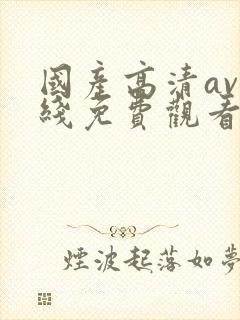 國產高清av
綫免費觀看
煙波起落如夢